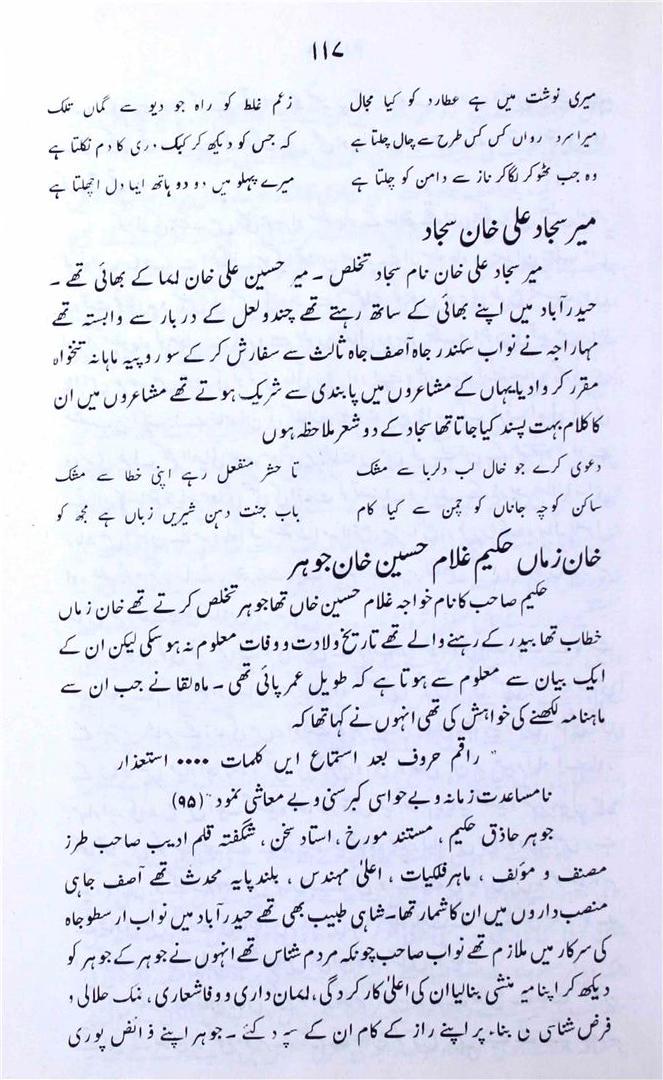 ۱۱۷
میری نوشت میں ہے عطارد کو کیا مجال زعم غلط کو راہ جو دیو سے گماں تلک
میرا سرو رواں کس کس طرح سے چال چلتا ہے کہ جس کو دیکھ کر کبک دری کا دم نکلتا ہے
وہ جب ٹھوکر لگا کر ناز سے دامن کو چلتا ہے میرے پہلو میں دو دو ہاتھ ایسا دل اچھلتا ہے
میر سجاد علی خان سجاد
میر سجاد علی خان نام سجاد تخلص ۔ میر حسین علی خان ایما کے بھائی تھے ۔
حیدرآباد میں اپنے بھائی کے ساتھ رہتے تھے چندولعل کے دربار سے وابستہ تھے
مہاراجہ نے نواب سکندر جاہ آصف جاہ ثالث سے سفارش کر کے سو روپیہ ماہانہ تنخواہ
مقرر کروا دیا یہاں کے مشاعروں میں پابندی سے شریک ہوتے تھے مشاعروں میں ان
کا کلام بہت پسند کیا جاتا تھا سجاد کے دو شعر ملاحظہ ہوں
دعوی کرے جو خال لب دلربا سے مشک تا حشر منفعل رہے اپنی خطا سے مشک
ساکن کوچہ جاناں کو چمن سے کیا کام باب جنت دہن شیریں زباں ہے مجھ کو
خان زماں حکیم غلام حسین خان جوہر
حکیم صاحب کا نام خواجہ غلام حسین خاں تھا جوہر تخلص کرتے تھے خان زماں
خطاب تھا بیدر کے رہنے والے تھے تاریخ ولادت و وفات معلوم نہ ہو سکی لیکن ان کے
ایک بیان سے معلوم سے ہوتا ہے کہ طویل عمر پائی تھی ۔ ماہ لقا نے جب ان سے
ماہنامہ لکھنے کی خواہش کی تھی انہوں نے کہا تھا کہ
" راقم حروف بعد استماع ایں کلمات .... استعذار
نا مساعدت زمانہ و بے حواسی کبر سنی و بے معاشی نمود " (۹۵)
جوہر حاذق حکیم ، مستند مورخ ، استاد سخن ، شگفتہ قلم ادیب صاحب طرز
مصنف و مؤلف ، ماہر فلکیات ، اعلیٰ مہندس ، بلند پایہ محدث تھے آصف جاہی
منصب داروں میں ان کا شمار تھا۔ شاہی طبیب بھی تھے حیدرآباد میں نواب ارسطو جاہ
کی سرکار میں ملازم تھے نواب صاحب چونکہ مردم شناس تھے انہوں نے جوہر کے جوہر کو
دیکھ کر اپنا میر منشی بنا لیا ان کی اعلیٰ کار کردگی، ایمان داری و وفا شعاری ، نمک حلالی و
فرض شناسی کی بناء پر اپنے راز کے کام ان کے سپرد کئے ۔ جوہر اپنے فرائض پوری